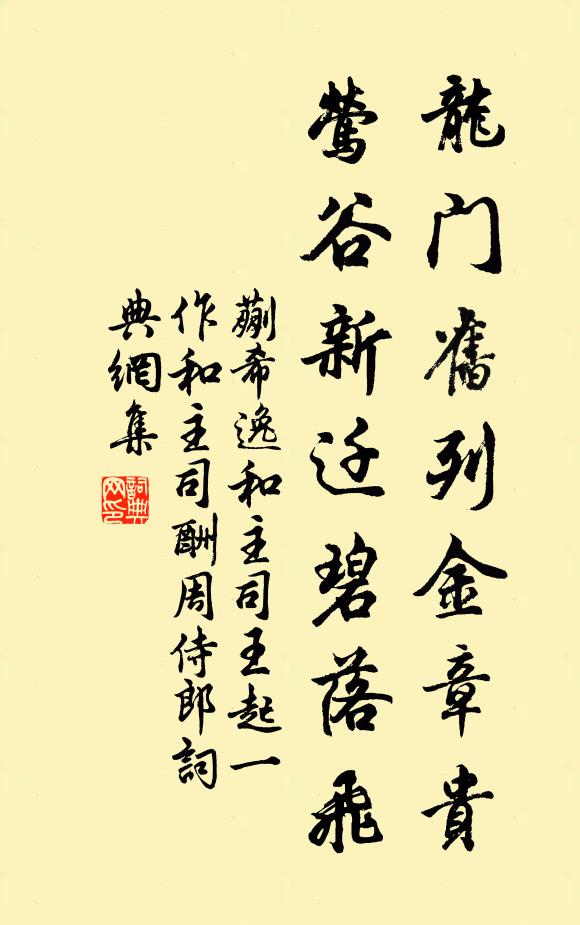 龍门舊列金章貴
鶯谷新迁碧落飛
蒯希逸和主司王起一
作和主司酬周侍郎詞
典網集
詞典
网印